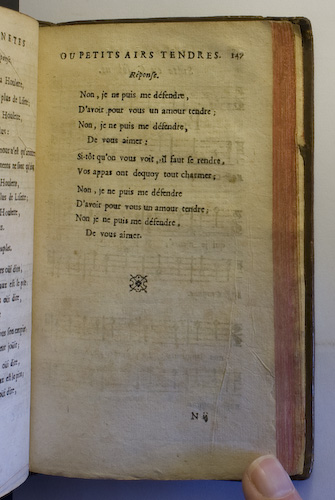 OU PETITS AIRS TENDRES. 147
Réponse.
Non, je ne puis me défendre,
D'avoir pour vous un amour tendre;
Non, je ne puis me défendre,
De vous aimer;
Si-tôt qu'on vous voit, il faut se rendre,
Vos appas ont dequoy tout charmer;
Non, je ne puis me défendre
D'avoir pour vous un amour tendre;
Non je ne puis me défendre,
De vous aimer.
N ij
NETES
Houlette,
plus de Lisete;
Houlette,
Houlette,
Lisete,
Houlette,
oüi dire,
oüi dire,